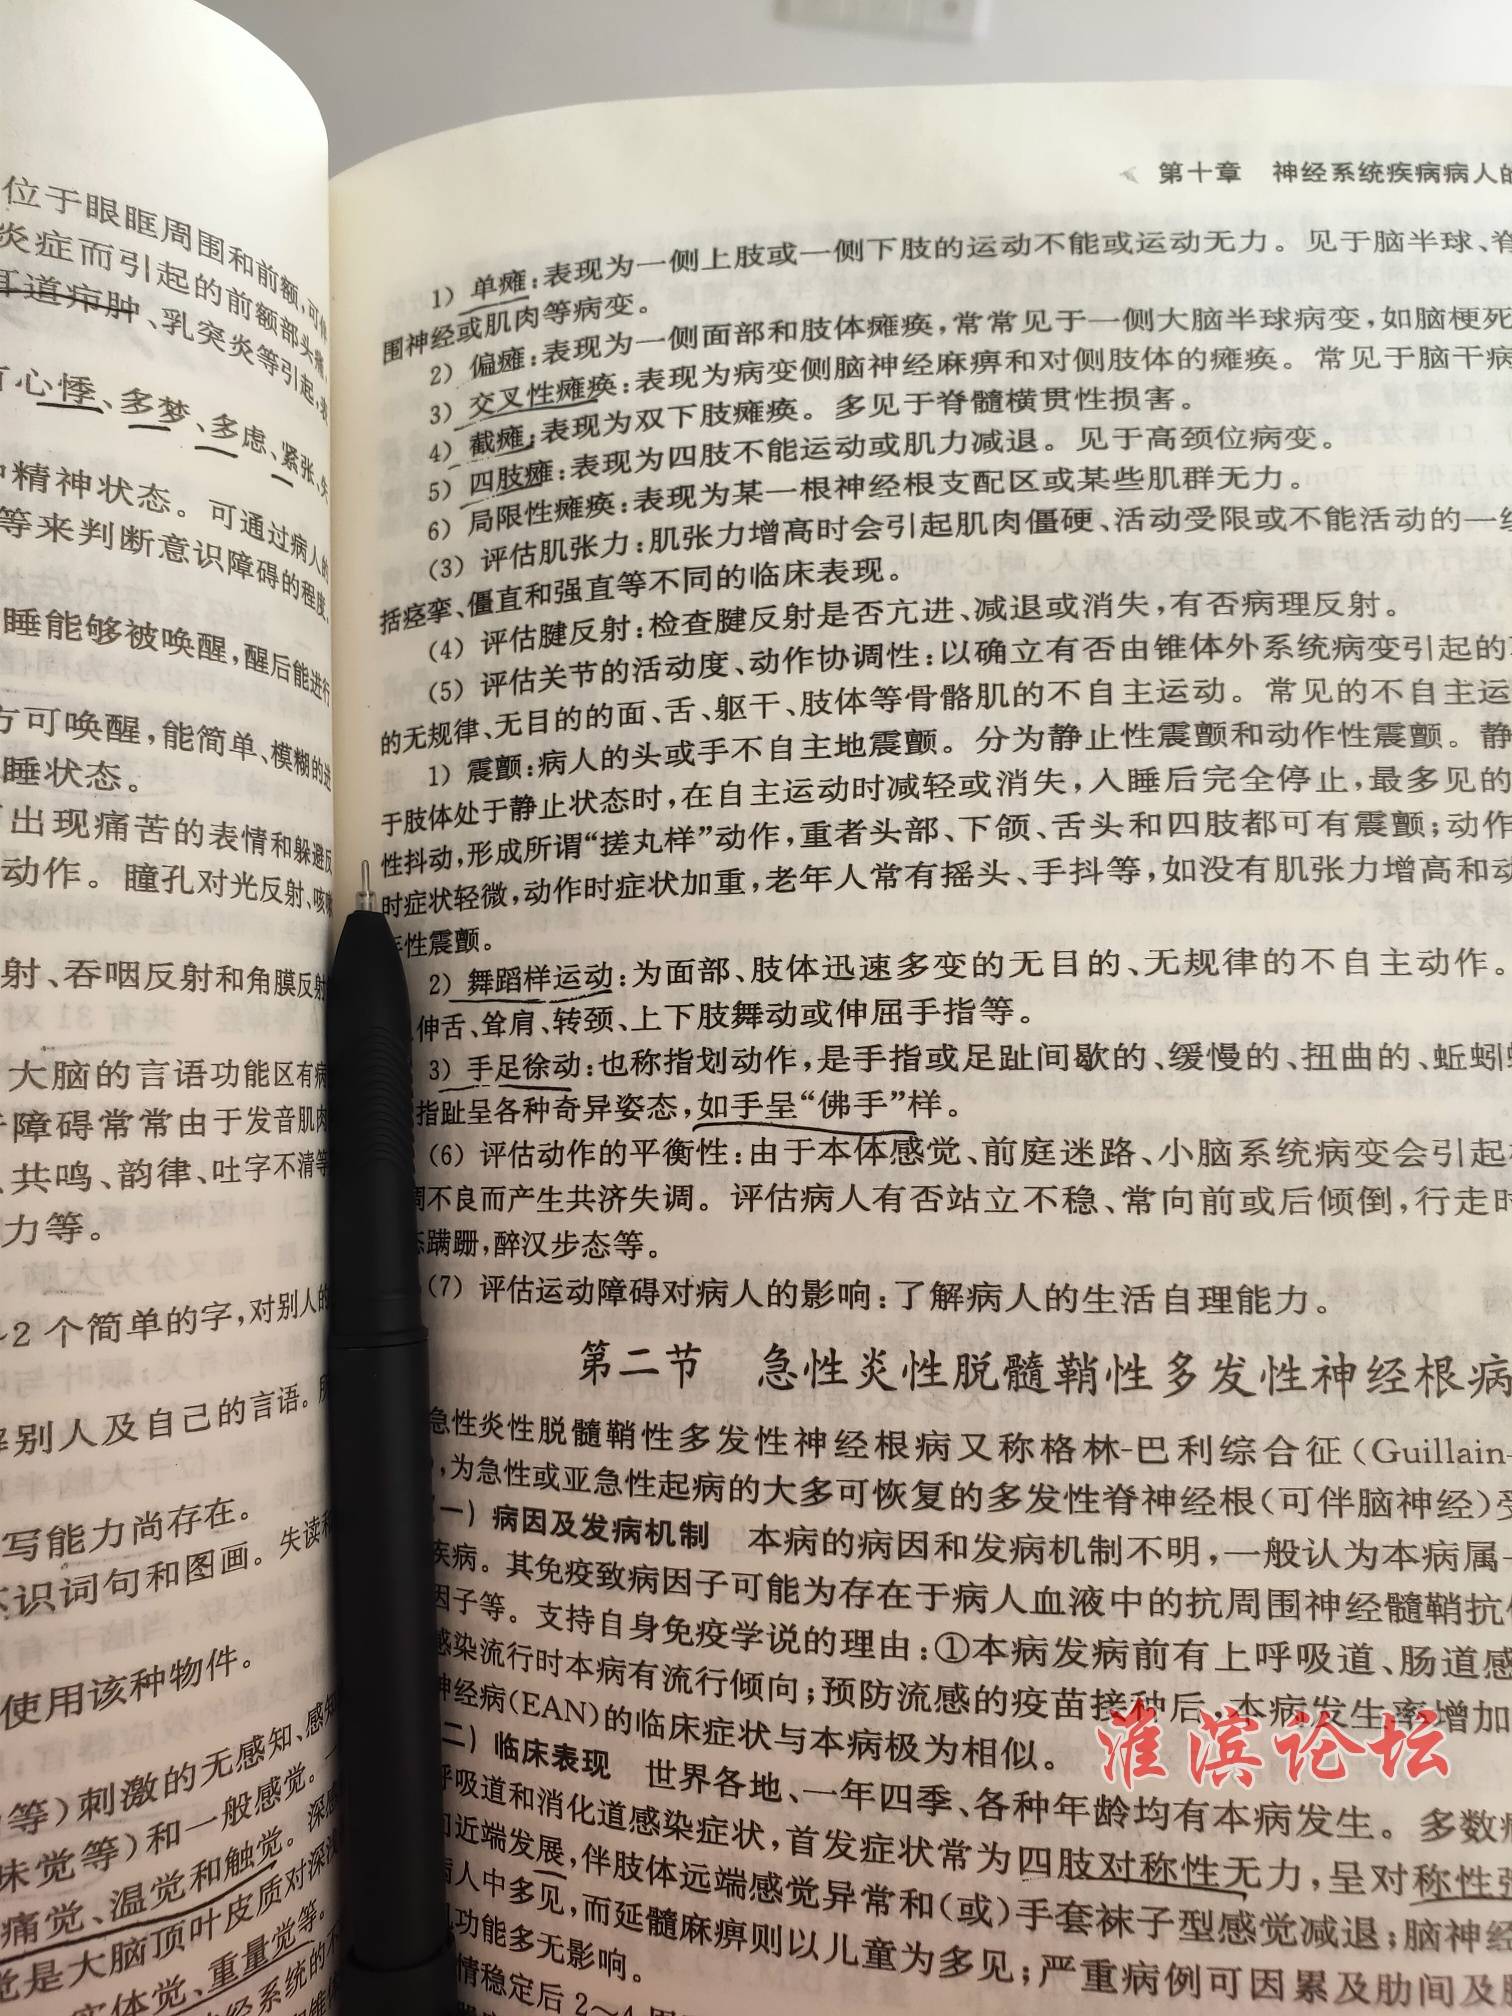 位于眼眶周围和前额,可伴
炎症而引起的前额部头痛,
耳道疖肿、乳突炎等引起,表
有心悸、多梦、多虑、紧张、失
和精神状态。可通过病人的
等来判断意识障碍的程度,
睡能够被唤醒,醒后能进行
方可唤醒,能简单、模糊的进
睡状态。
出现痛苦的表情和躲避反
动作。瞳孔对光反射、咳嗽
射、吞咽反射和角膜反射
大脑的言语功能区有病
障碍常常由于发音肌肉
、共鸣、韵律、吐字不清等
力等。
~2个简单的字,对别人的
解别人及自己的言语。
写能力尚存在。
不识词句和图画。失读和
使用该种物件。
等)刺激的无感知、感知
味觉等)和一般感觉。
痛觉、温觉和触觉。深感
觉是大脑顶叶皮质对深浅
实体觉、重量觉等。
第十章 神经系统疾病病人的
1) 单瘫:表现为一侧上肢或一侧下肢的运动不能或运动无力。见于脑半球、脊
围神经或肌肉等病变。
2) 偏瘫:表现为一侧面部和肢体瘫痪,常常见于一侧大脑半球病变,如脑梗死
3) 交叉性瘫痪:表现为病变侧脑神经麻痹和对侧肢体的瘫痪。常见于脑干病
4) 截瘫:表现为双下肢瘫痪。多见于脊髓横贯性损害。
5) 四肢瘫:表现为四肢不能运动或肌力减退。见于高颈位病变。
6) 局限性瘫痪:表现为某一根神经根支配区或某些肌群无力。
(3) 评估肌张力:肌张力增高时会引起肌肉僵硬、活动受限或不能活动的一
括痉挛、僵直和强直等不同的临床表现。
(4) 评估腱反射:检查腱反射是否亢进、减退或消失,有否病理反射。
(5) 评估关节的活动度、动作协调性:以确立有否由锥体外系统病变引起的
的无规律、无目的的面、舌、躯干、肢体等骨骼肌的不自主运动。常见的不自主运
1) 震颤:病人的头或手不自主地震颤。分为静止性震颤和动作性震颤。静
于肢体处于静止状态时,在自主运动时减轻或消失,入睡后完全停止,最多见的
性抖动,形成所谓“搓丸样”动作,重者头部、下颌、舌头和四肢都可有震颤;动作
时症状轻微,动作时症状加重,老年人常有摇头、手抖等,如没有肌张力增高和动
性震颤。
2) 舞蹈样运动:为面部、肢体迅速多变的无目的、无规律的不自主动作。
伸舌、耸肩、转颈、上下肢舞动或伸屈手指等。
3) 手足徐动:也称指划动作,是手指或足趾间歇的、缓慢的、扭曲的、蚯蚓
指趾呈各种奇异姿态,如手呈“佛手”样。
(6) 评估动作的平衡性:由于本体感觉、前庭迷路、小脑系统病变会引起
调不良而产生共济失调。评估病人有否站立不稳、常向前或后倾倒,行走时
态蹒跚,醉汉步态等。
(7) 评估运动障碍对病人的影响:了解病人的生活自理能力。
第二节 急性炎性脱髓鞘性多发性神经根病
急性炎性脱髓鞘性多发性神经根病又称格林-巴利综合征(Guillain-
,为急性或亚急性起病的大多可恢复的多发性脊神经根(可伴脑神经)受
(一) 病因及发病机制 本病的病因和发病机制不明,一般认为本病属
疾病。其免疫致病因子可能为存在于病人血液中的抗周围神经髓鞘抗
因子等。支持自身免疫学说的理由:①本病发病前有上呼吸道、肠道感
感染流行时本病有流行倾向;预防流感的疫苗接种后,本病发生率增加
神经病(EAN)的临床症状与本病极为相似。
二) 临床表现 世界各地、一年四季、各种年龄均有本病发生。多数
呼吸道和消化道感染症状,首发症状常为四肢对称性无力,呈对称性
近端发展,伴肢体远端感觉异常和(或)手套袜子型感觉减退;脑神经
病人中多见,而延髓麻痹则以儿童为多见;严重病例可因累及肋间及
功能多无影响。
情稳定后2~4
淮滨论坛